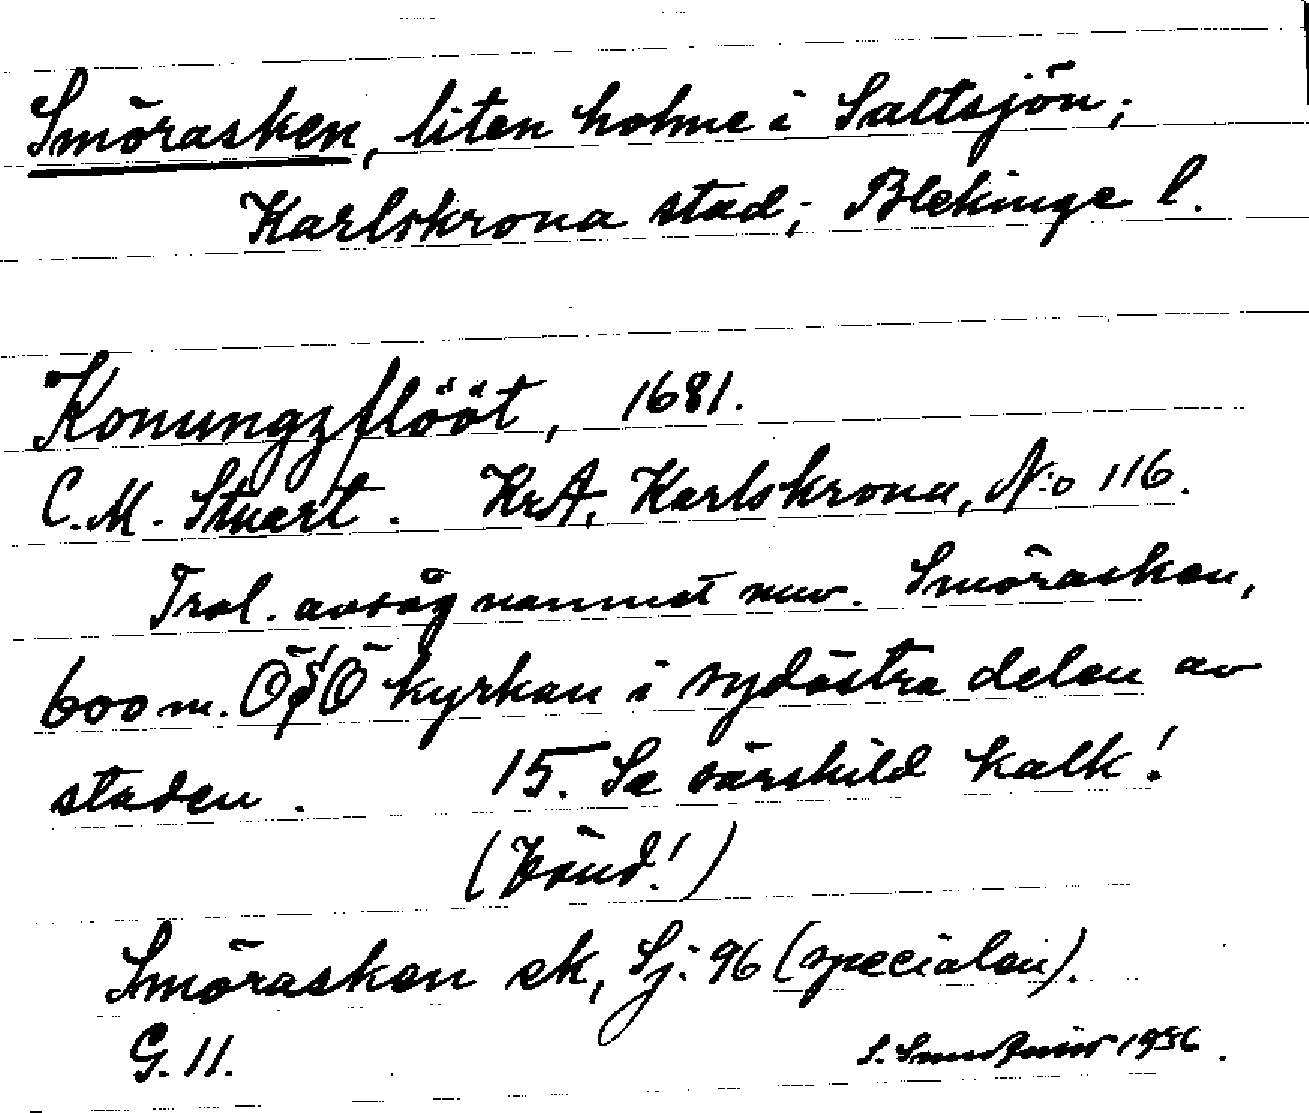 Smörasken, liten holme i Saltsjön;
Karlskrona stad; Blekinge l.
Konungzflööt, 1681.
C. M. Stuart. KrA, Karlskrona, N:o 116.
Trol. avsåg namnet nuv. Smörasken,
600 m. ÖSÖ kyrkan i sydöstra delen av
staden. 15. Se särskild kalk!
(Vänd!)
Smörasken sk, Sj: 96 (specialen).
G. 11.
1956.